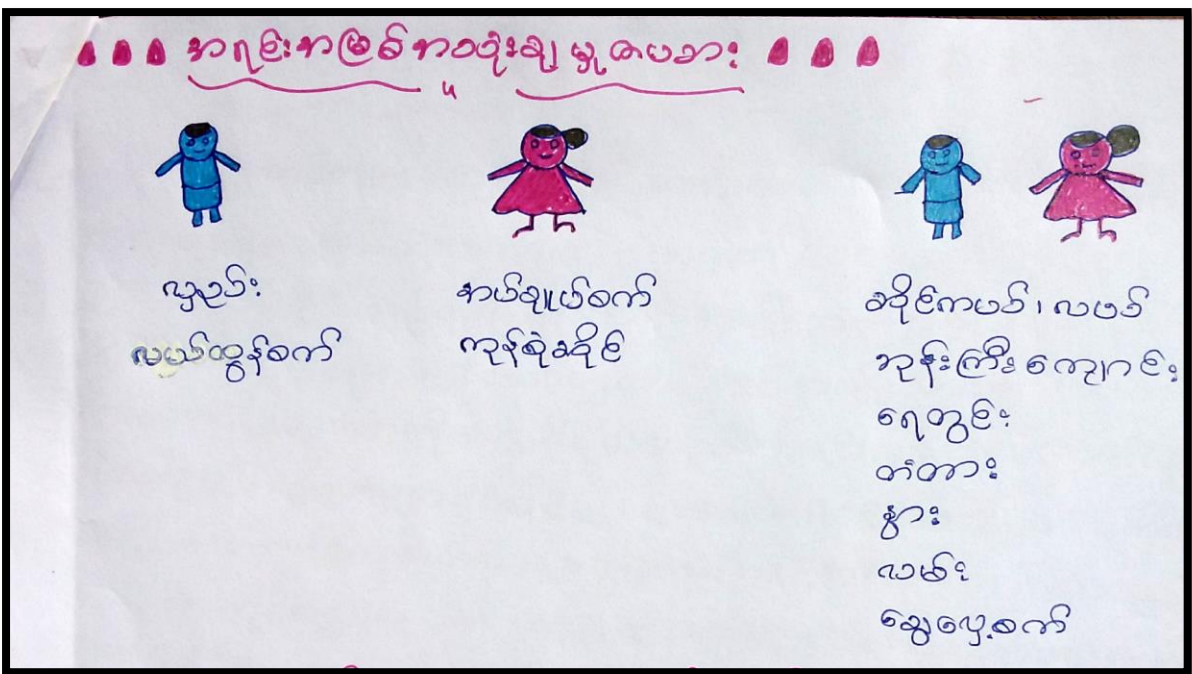 အရင်းအမြစ်အသုံးချမှုဇယား
လှည်း
လယ်ထွန်စက်
အပ်ချုပ်စက်
ကုန်စုံဆိုင်
ဆိုင်ကယ်၊လယ်
ဘုန်းကြီးကျောင်း
ရေတွင်း
တံတား
နွား
လမ်း
ခြွေလှေ့စက်